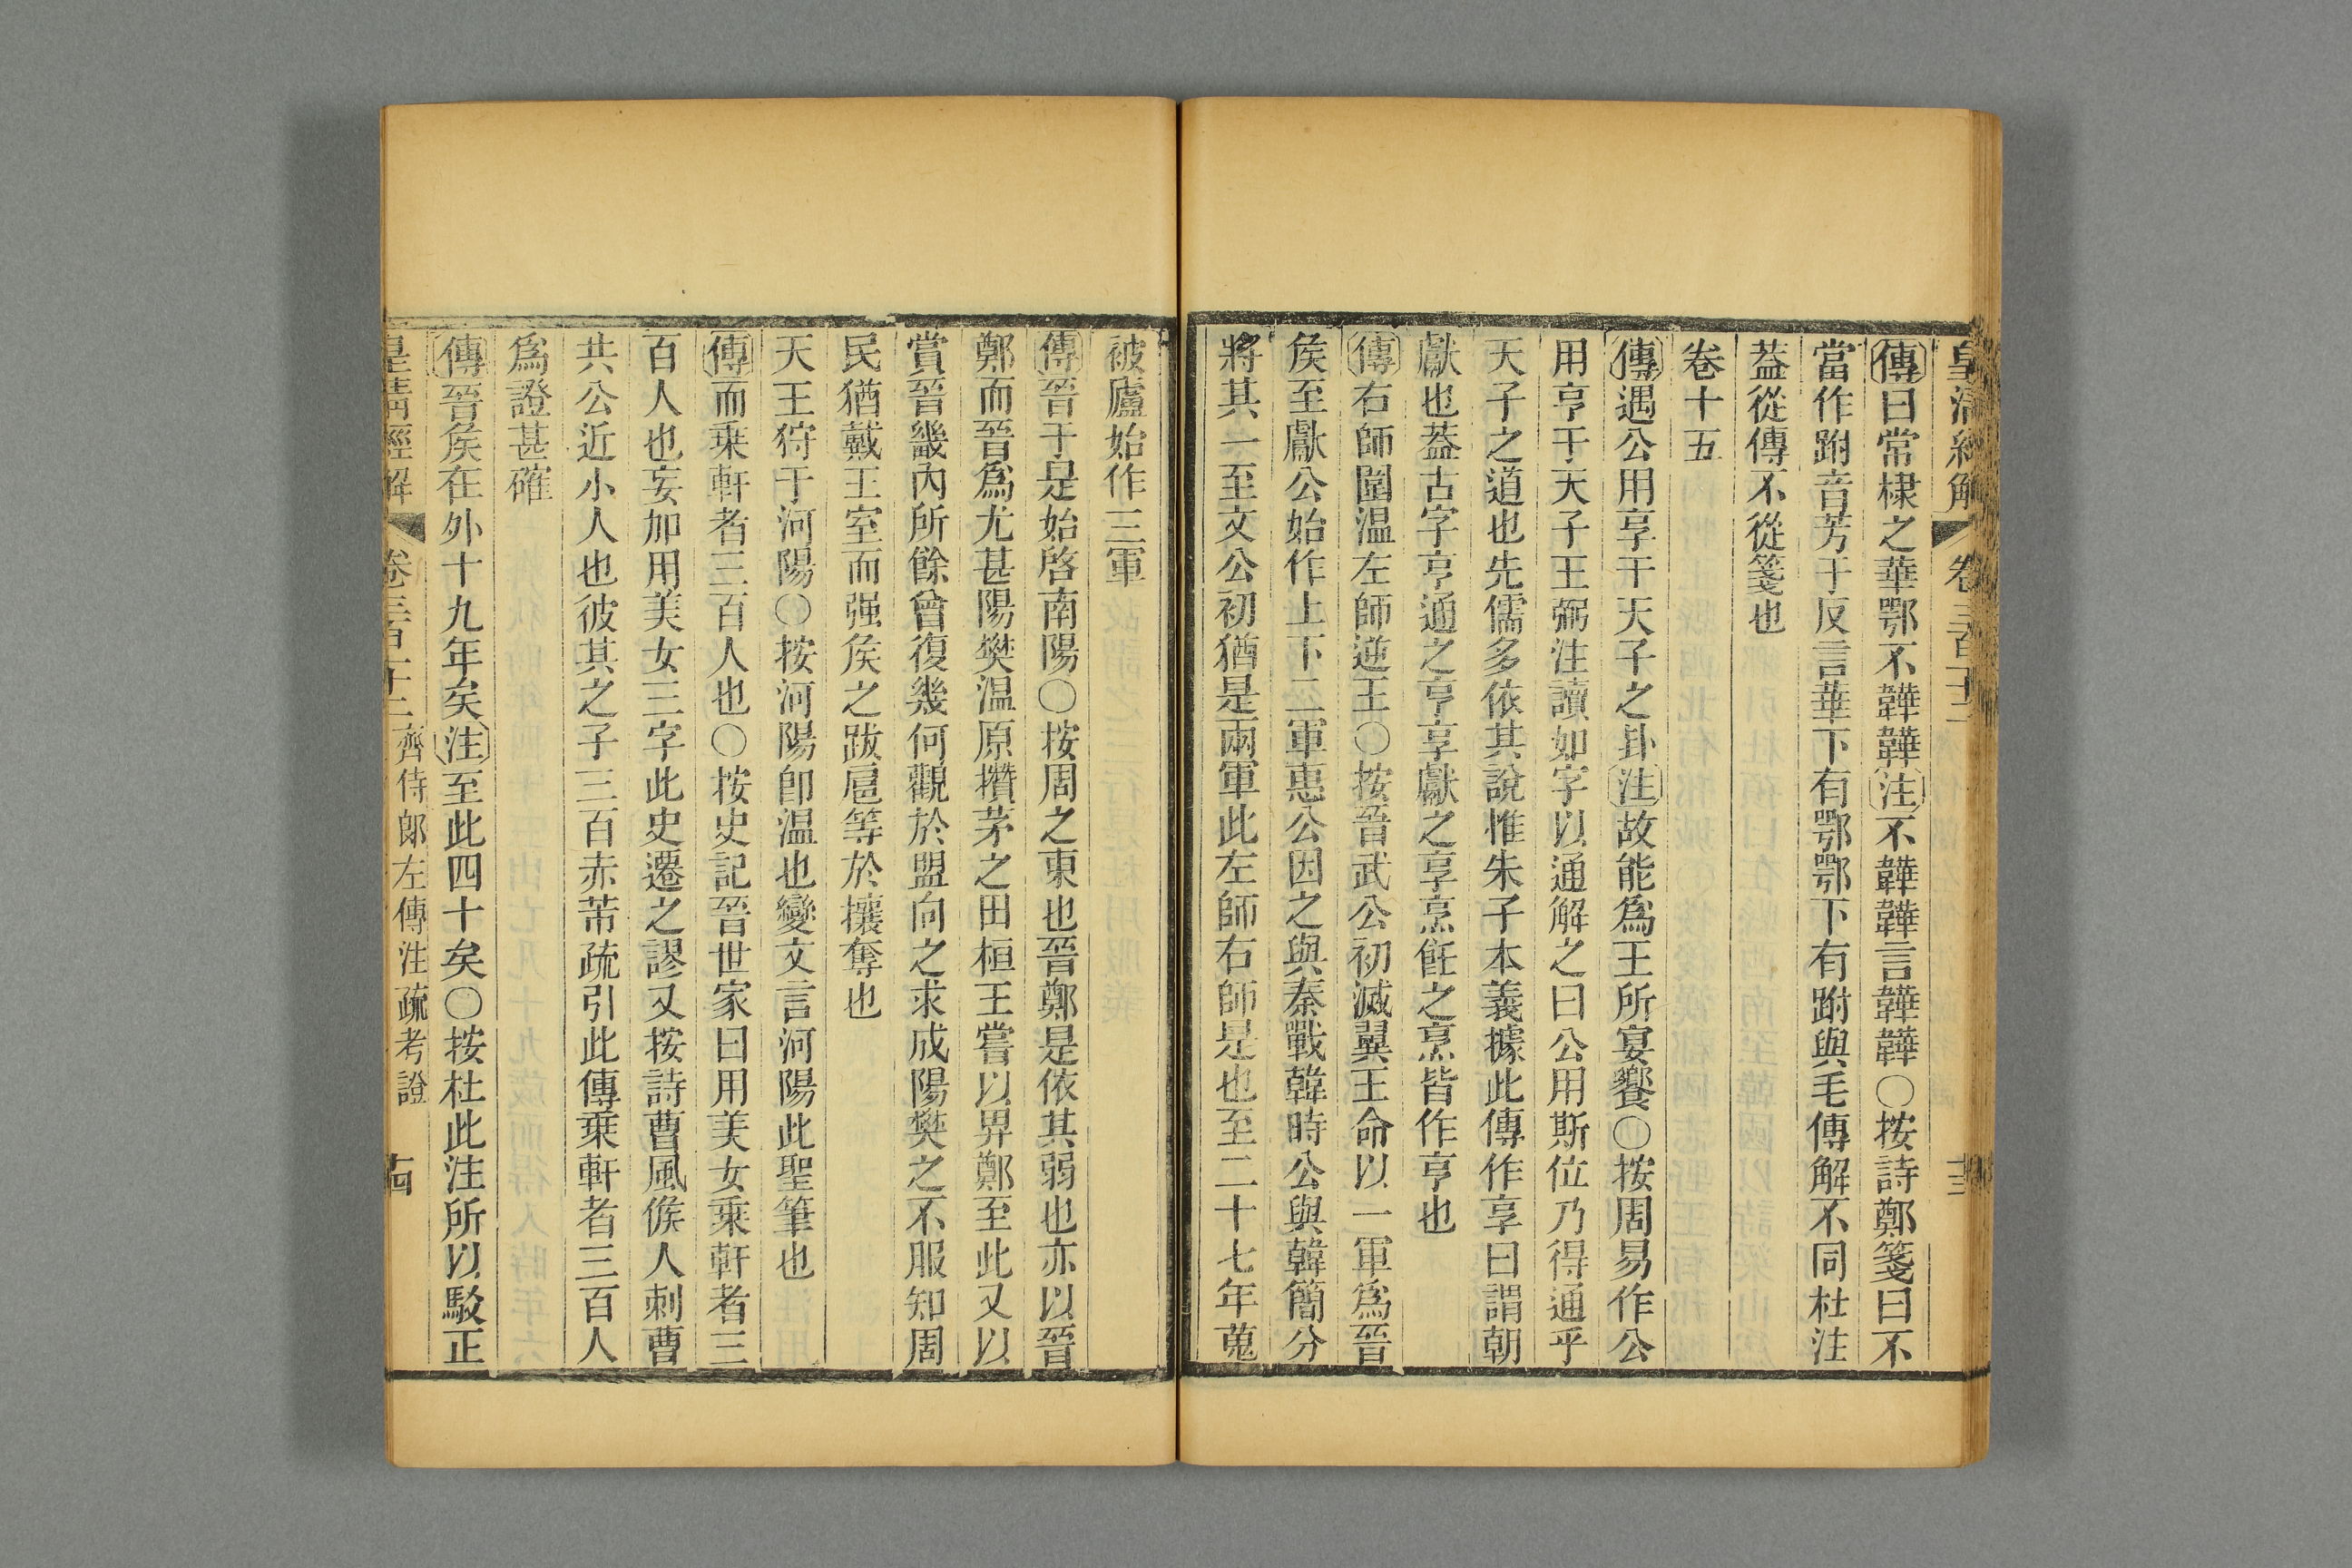 皇清經解 卷三百十二 十三
傳曰常棣之華鄂不韡韡注不韡韡言韡韡○按詩鄭箋曰不
當作跗音芳于反言華下有鄂鄂下有跗與毛傳解不同杜注
葢從傳不從箋也
卷十五
傳遇公用享于天子之卦注故能爲王所宴饗○按周易作公
用亨于天子王弼注讀如字以通解之曰公用斯位乃得通乎
天子之道也先儒多依其說惟朱子本義據此傳作享曰謂朝
獻也葢古字亨通之亨享獻之享烹飪之烹皆作亨也
傳右師圍温左師逆王○按晉武公初滅翼王命以一軍爲晉
矦至獻公始作上下二軍惠公因之與秦戰韓時公與韓簡分
將其一至文公初猶是兩軍此左師右師是也至二十七年蒐
被廬始作三軍
傳晉于是始啓南陽○按周之東也晉鄭是依其弱也亦以晉
鄭而晉爲尤甚陽樊温原攢茅之田桓王嘗以畀鄭至此又以
賞晉畿內所餘曾復幾何觀於盟向之求成陽樊之不服知周
民猶戴王室而强矦之跋扈等於攘奪也
天王狩于河陽○按河陽卽温也變文言河陽此聖筆也
傳而乗軒者三百人也○按史記晉世家曰用美女乗軒者三
百人也妄加用美女三字此史遷之謬又按詩曹風候人刺曹
共公近小人也彼其之子三百赤芾疏引此傳乗軒者三百人
爲證甚確
傳晉矦在外十九年矣注至此四十矣○按杜此注所以駁正
皇清經解 卷三百十二 齊侍郞左傳注疏考證 十四